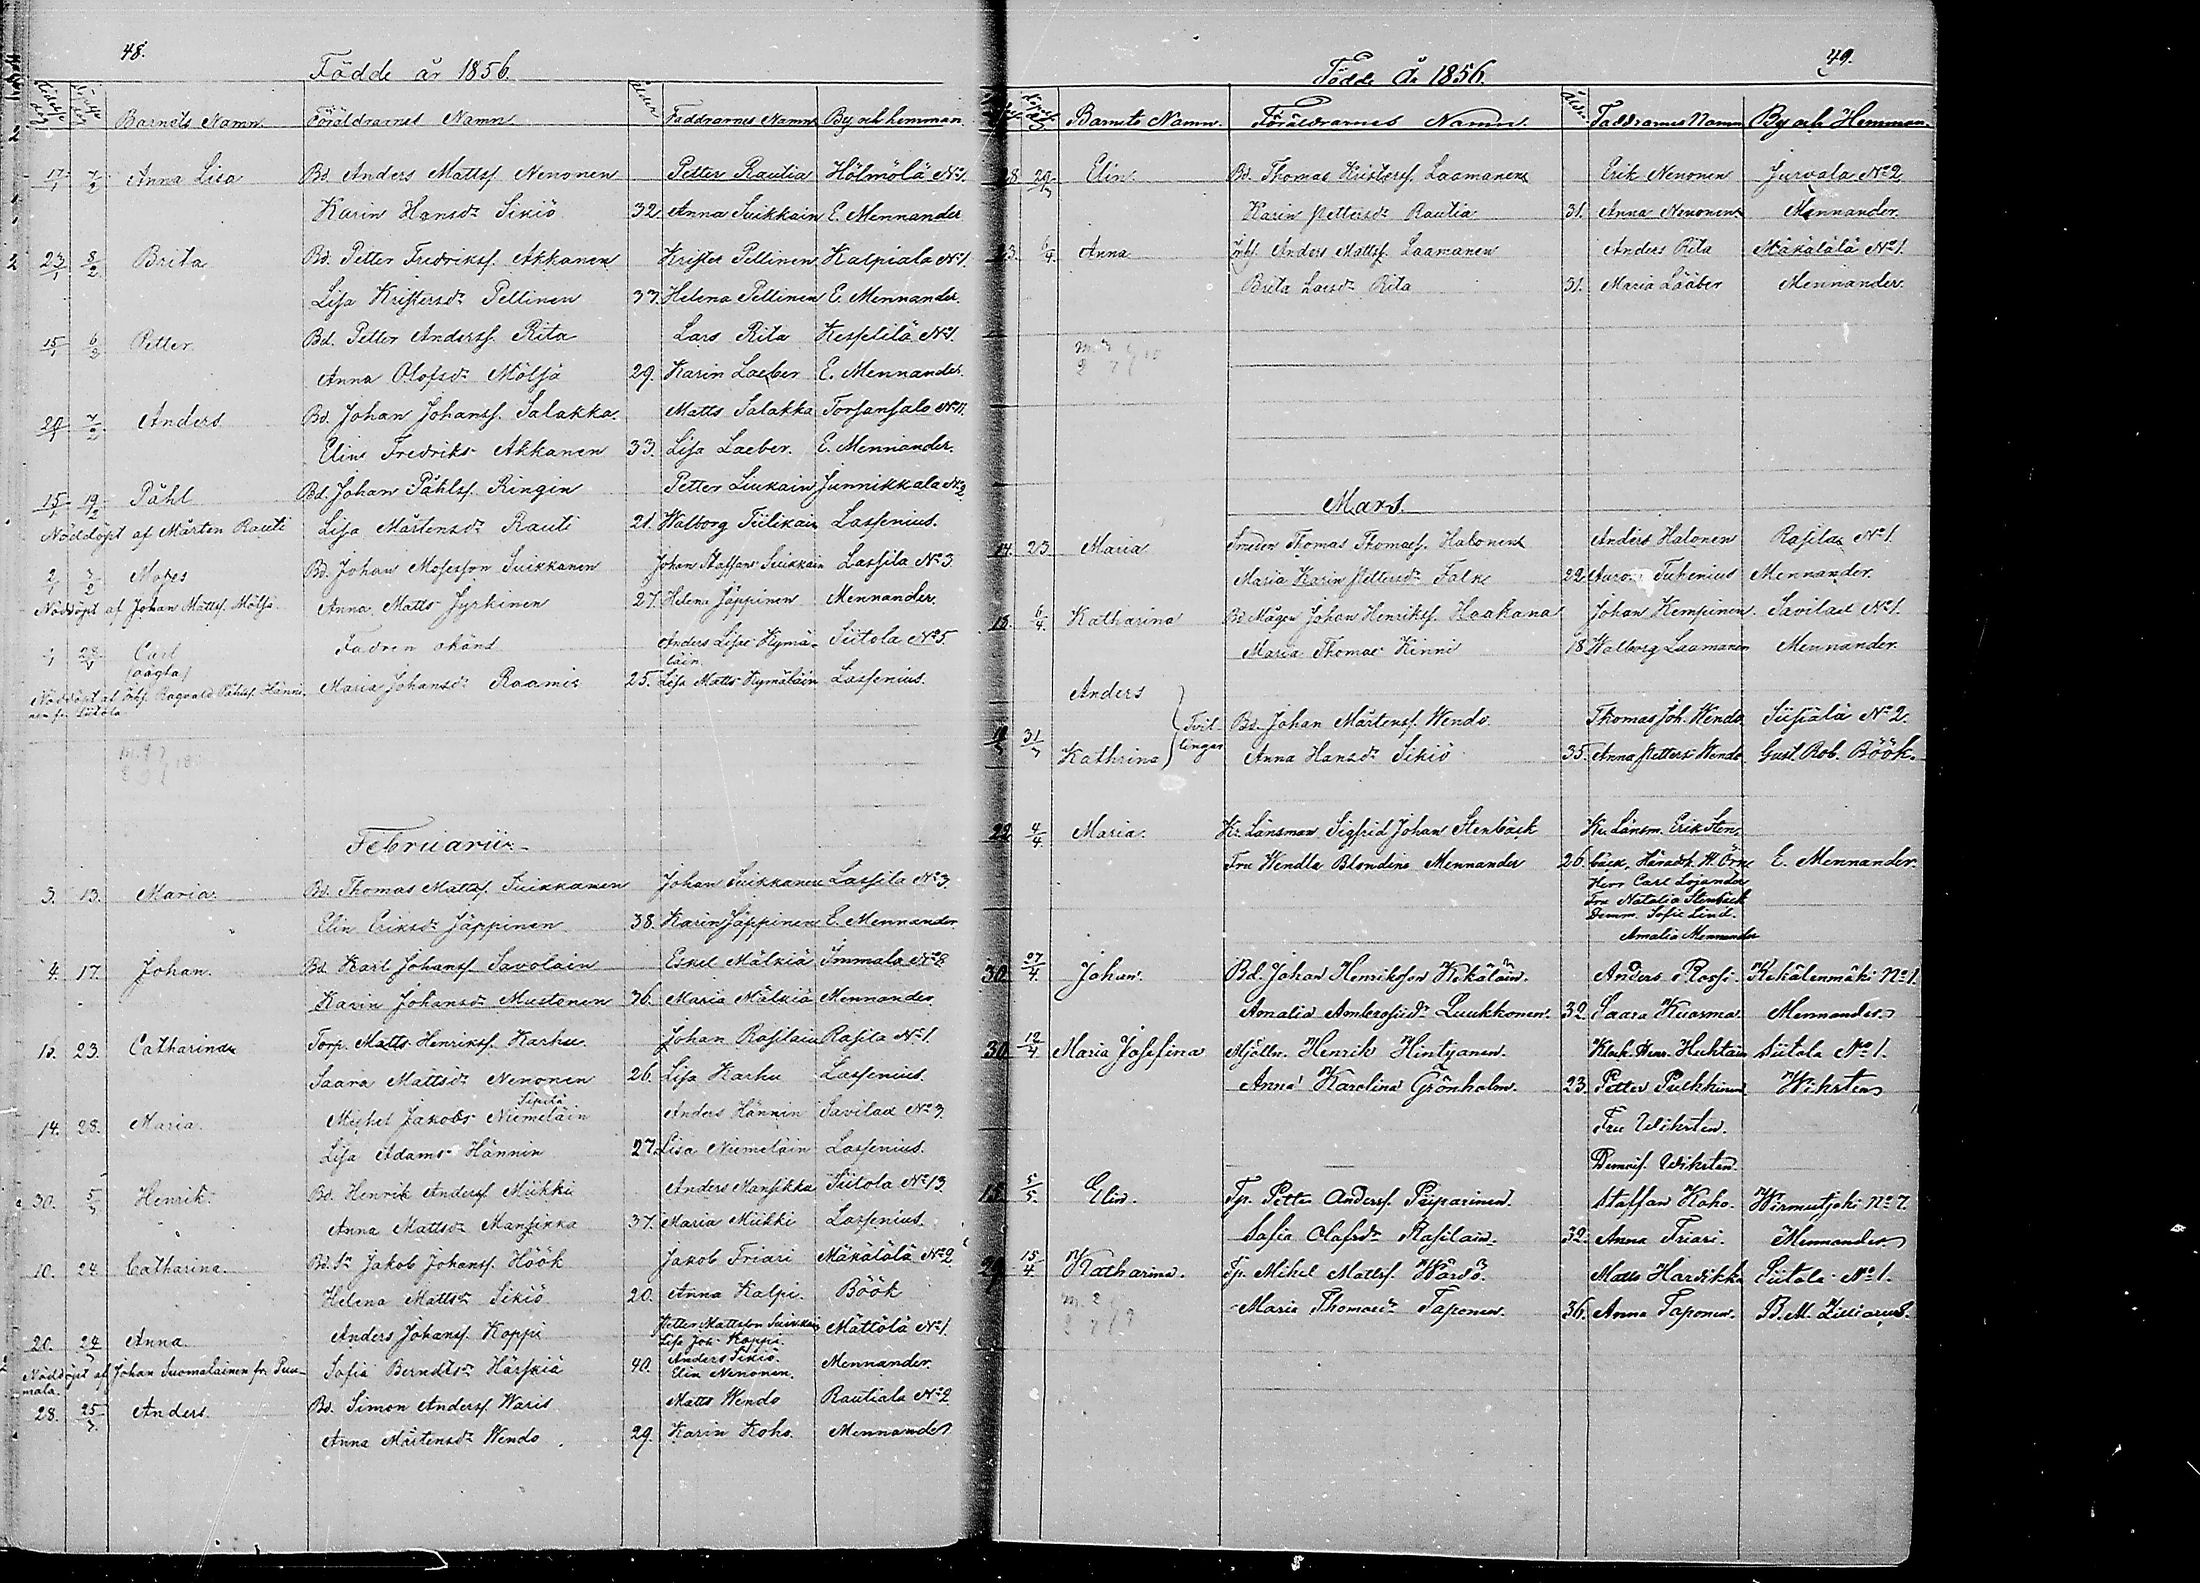 48.
Födde år 1856.
Barnets Namn Föräldrarnes Namn ålder Faddrarnes Namn By och hemman
17/1 7/2 Anna Lisa Bd. Anders Mattsf. Nenonen Petter Rautia Hölmölä No 1.
Karin Hansdr Sikiö 32 Anna Suikkain E. Mennander
23/1 8/2 Brita Bd. Petter Fredriksf. Akkanen Krister Pellinen Kalpiala No 1.
Lisa Kristersdr Pellinen 33. Helena Pellinen E. Mennander.
15/1 6/2 Petter Bd. Petter Andersf. Rita Lars Rita Keskelilä No 1.
Anna Olofsdr Möljä 29. Karin Laeber E. Mennander.
20/1 7/2 Anders Bd. Johan Johansf. Salakka Matts Salakka Torsansalo No 11.
Elin Fredriks Akkanen 33. Lisa Laeber. E. Mennander.
15/1 19/2 Påhl Bd. Johan Påhlsf. Ringin Petter Liukain Junnikkala No 2
Nöddöpt af Mårten Rauti Lisa Mårtensdr Rauti 21. Walborg Tiilikain Lassenius.
2/1 7/2 Moses Bd. Johan Mosesson Suikkanen Johan Staffans Suikkain Lassila No 3.
Nöddöpt af Johan Mattsf. Möljä. Anna Matts Jyrkinen 27. Helena Jäppinen Mennander.
28/1 Carl Fadren okänd Anders Lisas Kymä- Siitola No 5.
(oägta) läin.
Nöddöpt af Inhs. Ragvald Påhlsf. Hänni- Maria Johansdr Raamis 25. Lisa Matts Kymäläin Lassenius.
nen fr. Siitola
Februarii
3. 13. Maria Bd. Thomas Mattsf. Suikkanen Johan Suikkanen Lassila No 3.
Elin Eriksdr Jäppinen 38. Karin Jäppinen E. Mennander
4. 17. Johan. Bd. Karl Johansf. Savolain Eskel Mälkiä Immala No 8.
Karin Johansdr Mustonen 36. Maria Mälkiä Mennander.
16. 23. Catharina Torp. Matts Henriksf. Karhu Johan Rasilain Rasila No 1.
Saara Mattsdr Nenonen 26. Lisa Karhu Lassenius.
Sipilä
14. 28. Maria. Michel Jakobs Niemeläin Anders Hännin Savilax No 3.
Lisa Adams Hännin 27. Lisa Niemeläin Lassenius.
30. 5/3 Henrik Bd. Henrik Andersf. Miikki Anders Mansikka Siitola No 13.
Anna Mattsdr Mansikka 37. Maria Miikki Lassenius.
10. 24 Catharina. Bd. Sr Jakob Johansf. Höök Jakob Friari Mäkälälä No 2
Helena Mattsdr Sikiö 20. Anna Kalpi. Böök
20. 24/3 Anna Anders Johansf. Koppi Petter Mattsson Suikkain Mättölä No 1.
Lisa Joh. Koppi.
Nöddöpt af Johan Suomalainen fr. Puu- Sofia Berndtsdr Härskiä 40. Anders Sikiö. Mennander.
mala. Elin Nenonen.
28. 25/3 Anders Bd. Simon Andersf. Waris Matts Wendo Rautiala No 2
Anna Mårtensdr Wendo 29. Karin Koho Mennander
49.
Födde År 1856.
Barnets Namn. Föräldrarnes Namn. ålder Faddrarnes Namn By och Hemman.
28 29/3 Elin Bd. Thomas Kristersf. Laamanen Erik Nenonen Jurvala No 2
Karin Pettersdr Rautia 31. Anna Nenonen Mennander.
6/4 Anna Inhs. Anders Mattsf. Laamanen Anders Rita Mäkälälä No 1.
Brita Larsdr Rita 31. Maria Lääber Mennander.
Mars.
14. 23 Maria Smeden Thomas Thomasf. Halonen Anders Halonen Rasilax No 1.
Maria Karin Pettersdr Falk 22 Aurora Tukenius Mennander.
15. 6/4. Katharina Bd. Mågen Johan Henriksf. Haakana Johan Kempinen Savilax No 1.
Maria Thomas Kinni 18 Walborg Laamanen Mennander.
Anders
31/3 Tvil- Bd. Johan Mårtensf. Wendo. Thomas Joh. Wendo. Suspälä No 2.
Kathrina lingar Anna Hansdr Sikiö 35. Anna Petters Wendo Gust. Rob. Böök.
22 4/4 Maria. Kr. Länsman Sigfrid Johan Stenbäck Kr. Länsm. Erik Sten-
Fru Wendla Blondina Mennander 26. bäck, Häradsh. H. Örn E. Mennander.
Herr Carl Lojander
Fru Natalia Stenbäck
Demm. Sofie Lind.
Amalia Mennander
30 07/4 Johan. Bd. Johan Henriksson Kekäläin. Anders Rossi. Kekälenmäki No 1.
Amalia Ambrosiidr Luukkonen. 32. Saara Kuosma. Mennander.
30. 12/4 Maria Josefina Mjölln. Henrik Hintyanen. Klock. Henr. Huhtain Siitola No 1.
Anna Karolina Grönholm. 23. Petter Pulkkinen Wikstén
Fru Wikstén.
Demois. Wikstén.
15. 5/5. Elin. Tp. Petter Andersf. Piiparinen. Staffan Koho. Wirmutjoki No 7.
Sofia Olafsdr Rasilain. 32. Anna Friari. Mennander.
15/4 Katharina. Tp. Mikel Mattsf. Wärdö. Matts Hardikka Siitola No 1.
Maria Thomasdr Taponen. 36. Anna Taponen. B. M. Ziliacus.